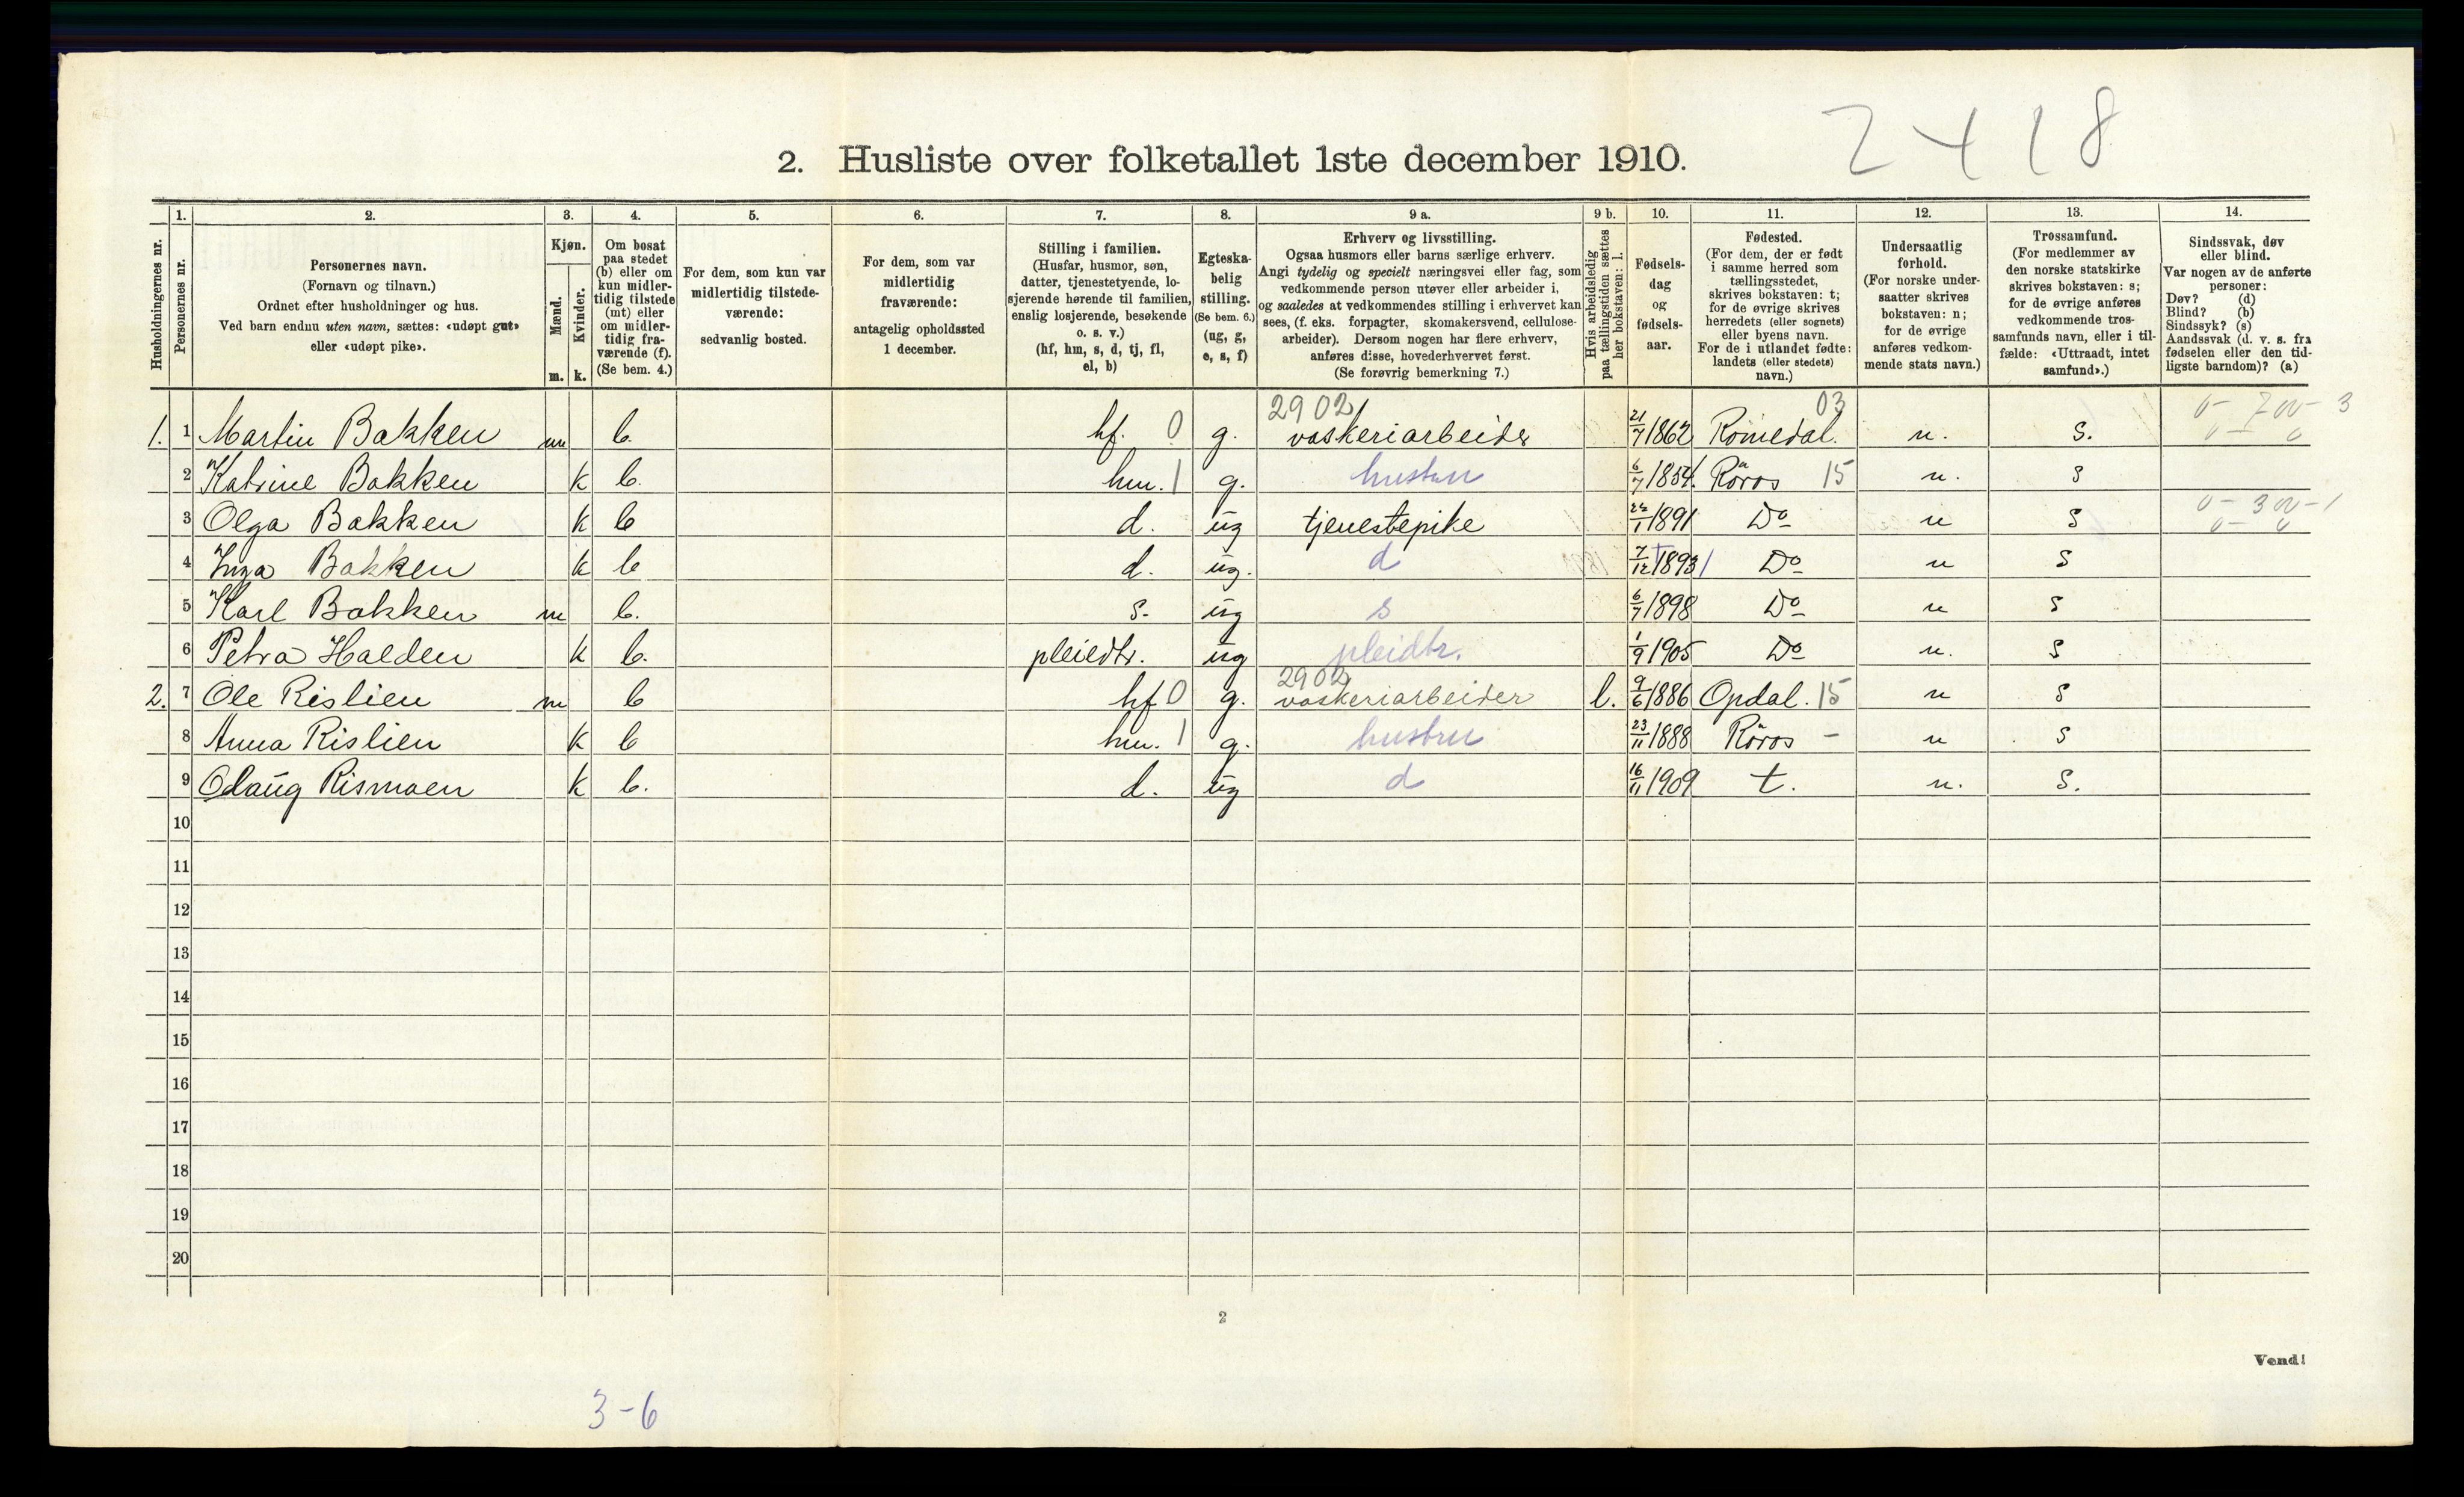 2418
2. Husliste over folketallet 1ste december 1910.
Husholdningernes nr.
1.
Personernes nr.
2.
Personernes navn.
(Fornavn og tilnavn.)
Ordnet efter husholdninger og hus.
Ved barn endnu uten navn, sættes: «udøpt gut»
eller «udøpt pike».
3.
Kjøn.
Mænd.
Kvinder.
m. k.
4.
Om bosat
paa stedet
(b) eller om
kun midler-
tidig tilstede
(mt) eller
om midler-
tidig fra-
værende (f).
(Se bem. 4.)
5.
For dem, som kun var
midlertidig tilstede-
værende:
sedvanlig bosted.
6.
For dem, som var
midlertidig
fraværende:
antagelig opholdssted
1 december.
7.
Stilling i familien.
(Husfar, husmor, søn,
datter, tjenestetyende, lo-
sjerende hørende til familien,
enslig losjerende, besøkende
o. s. v.)
(hf, hm, s, d, tj, fl,
el, b)
8.
Egteska-
belig
stilling.
(Se bem. 6.)
(ug, g,
e, s, f)
9 a.
Erhverv og livsstilling.
Ogsaa husmors eller barns særlige erhverv.
Angi tydelig og specielt næringsvei eller fag, som
vedkommende person utøver eller arbeider i,
og saaledes at vedkommendes stilling i erhvervet kan
sees, (f. eks. forpagter, skomakersvend, cellulose-
arbeider). Dersom nogen har flere erhverv,
anføres disse, hovederhvervet først.
(Se forøvrig bemerkning 7.)
9 b.
Hvis arbeidsledig
paa tællingstiden sættes
her bokstaven: l.
10.
Fødsels-
dag
og
fødsels-
aar.
11.
Fødested.
(For dem, der er født
i samme herred som
tællingsstedet,
skrives bokstaven: t;
for de øvrige skrives
herredets (eller sognets)
eller byens navn.
For de i utlandet fødte:
landets (eller stedets)
navn.)
12.
Undersaatlig
forhold.
(For norske under-
saatter skrives
bokstaven: n;
for de øvrige
anføres vedkom-
mende stats navn.)
13.
Trossamfund.
(For medlemmer av
den norske statskirke
skrives bokstaven: s;
for de øvrige anføres
vedkommende tros-
samfunds navn, eller i til-
fælde: «Uttraadt, intet
samfund».)
14.
Sindssvak, døv
eller blind.
Var nogen av de anførte
personer:
Døv? (d)
Blind? (b)
Sindssyk? (s)
Aandssvak (d. v. s. fra
fødselen eller den tid-
ligste barndom)? (a)
2902 03
1. 1 Martin Bakken m b. hf. 0 g. vaskeriarbeider 21/7 1862 Romedal. n. s.
2 Katrine Bakken k b. hm. 1 g. hustru 6/7 1854 Röros 15 n. s
3 Olga Bakken k b d. ug tjenestepike 22/1 1891 Do n s
4 Inga Bakken k b d. ug. d 7/12 1893 Do n s
5 Karl Bakken m b. s. ug s 6/7 1898 Do n s
6 Petra Halden k b. pleiedtr. ug pleidtr. 1/9 1905 Do n. s
2902
2. 7 Ole Rislien m b hf 0 g. vaskeriarbeider l. 9/6 1886 Opdal. 15 n s
8 Anna Rislien k b hm. 1 g. hustru 23/11 1888 Röros - n s
9 Olaug Rismoen k b. d. ug d 16/11 1909 t. n. s.
10
11
12
13
14
15
16
17
18
19
20
2
Vend!
3-6